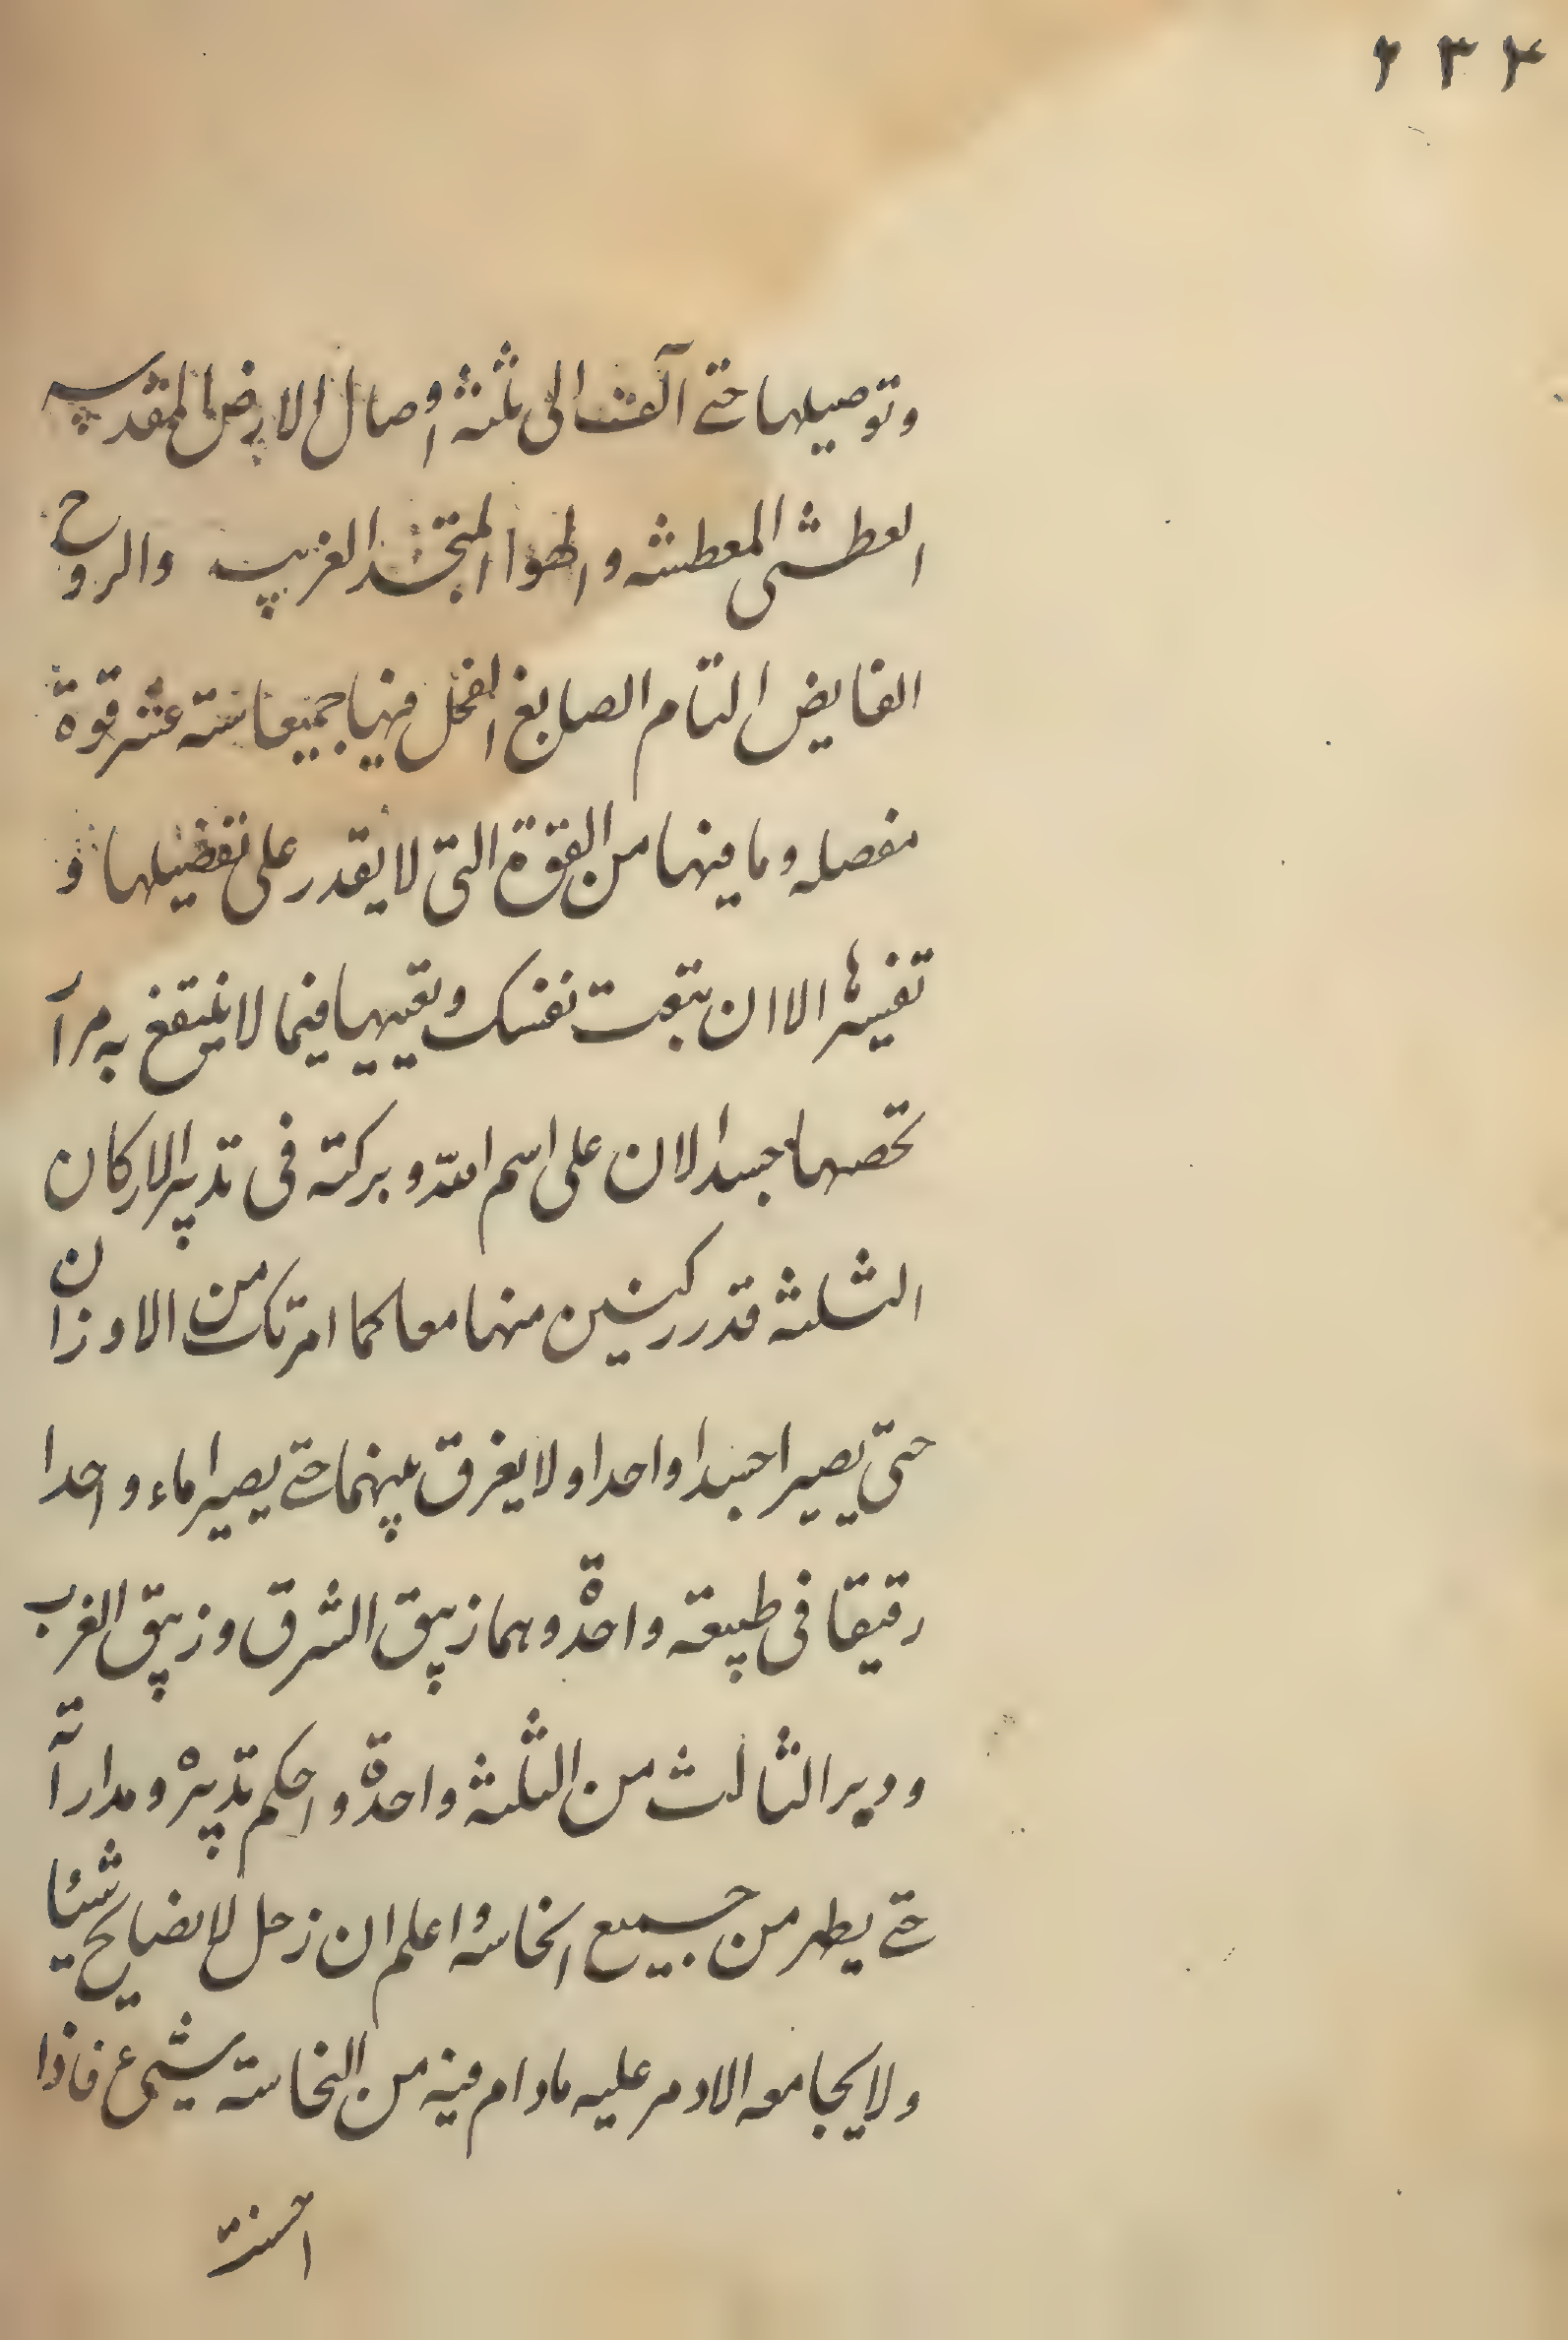 ٢٣٢
وتوصيلها حتى آلفت الى ثلثة اوصال الارض المقدسه
العطشى المعطشه والهوا المتجسد الغريب والروح
الفايض التام الصابغ الفحل فيها جميعا ستة عشر قوة
مفصله وما فيها من القوة التى لا يقدر على تفصيلها و
تفسيرها الا ان تتعب نفسك وتعييها فيما لا ينتفع به مرآ
تحصها جسدا لان على اسم الله وبركته فى تدبير الاركان
الثلثه قدر ركنين منها معا كما امرتك من الاوزان
حتى يصيرا جسدا واحدا ولا يفرق بينهما حتى يصيرا ماء واحدا
رقيقا فى طبيعة واحدة وهما زيبق الشرق وزيبق الغرب
ودبر الثالث من الثلثة واحدة واحكم تدبيره ومداراته
حتى يطهر من جميع النجاسة اعلم ان زحل لا يصالح شيئا
ولا يجامعه الا دمر عليه مادام فيه من النجاسته شىء فاذا
احسنت